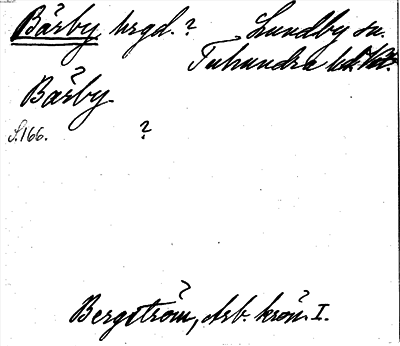 Bärby hrgd.? Lundby sn.
Tuhundra hd
Bärby
S.166. ?
Bergström, Arb. krön. I.